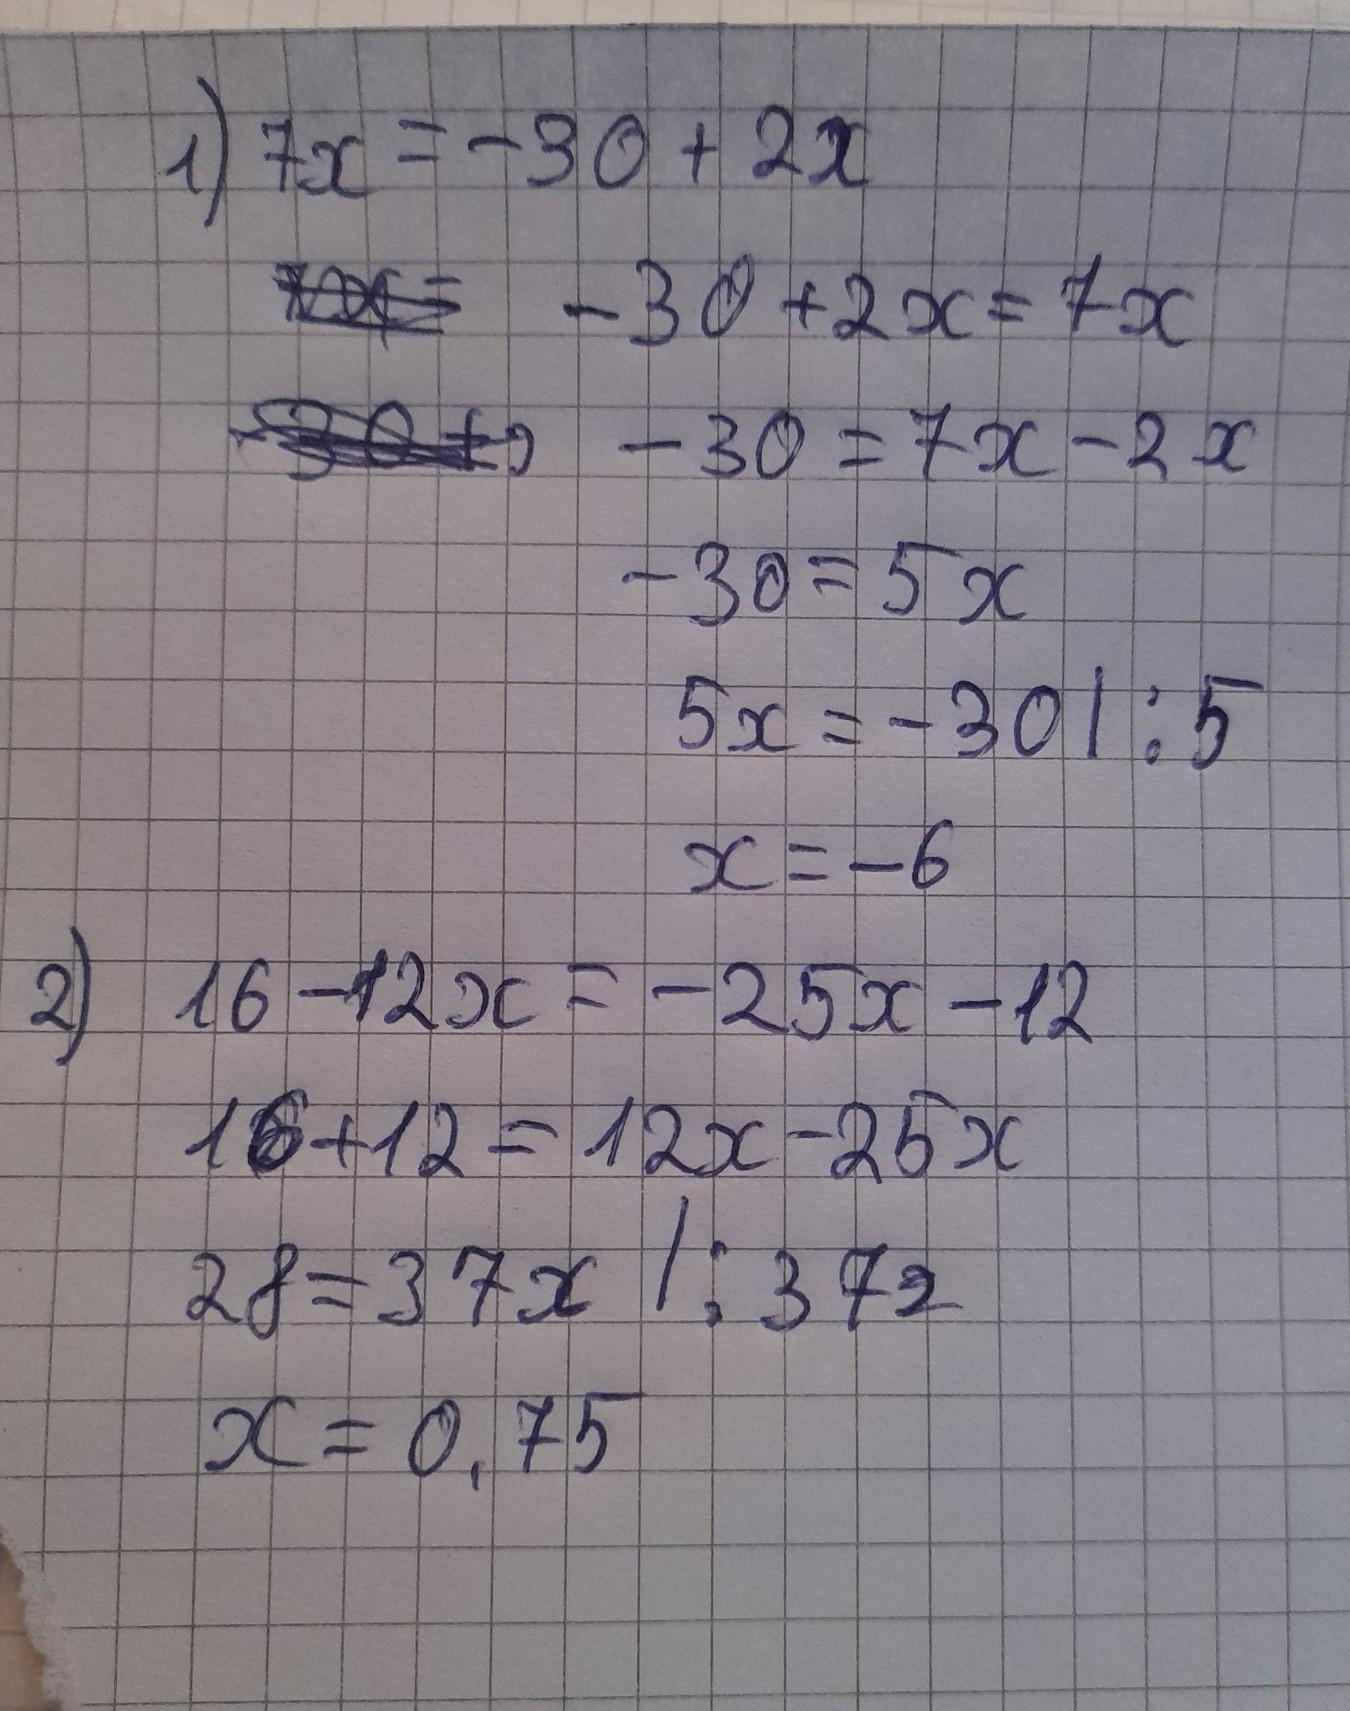 1) 7x = -30 + 2x
-30 + 2x = 7x
-30 = 7x - 2x
-30 = 5x
5x = -30 | : 5
x = -6
2) 16 - 12x = -25x - 12
16 + 12 = 12x - 25x
28 = 37x | : 37
x = 0,75